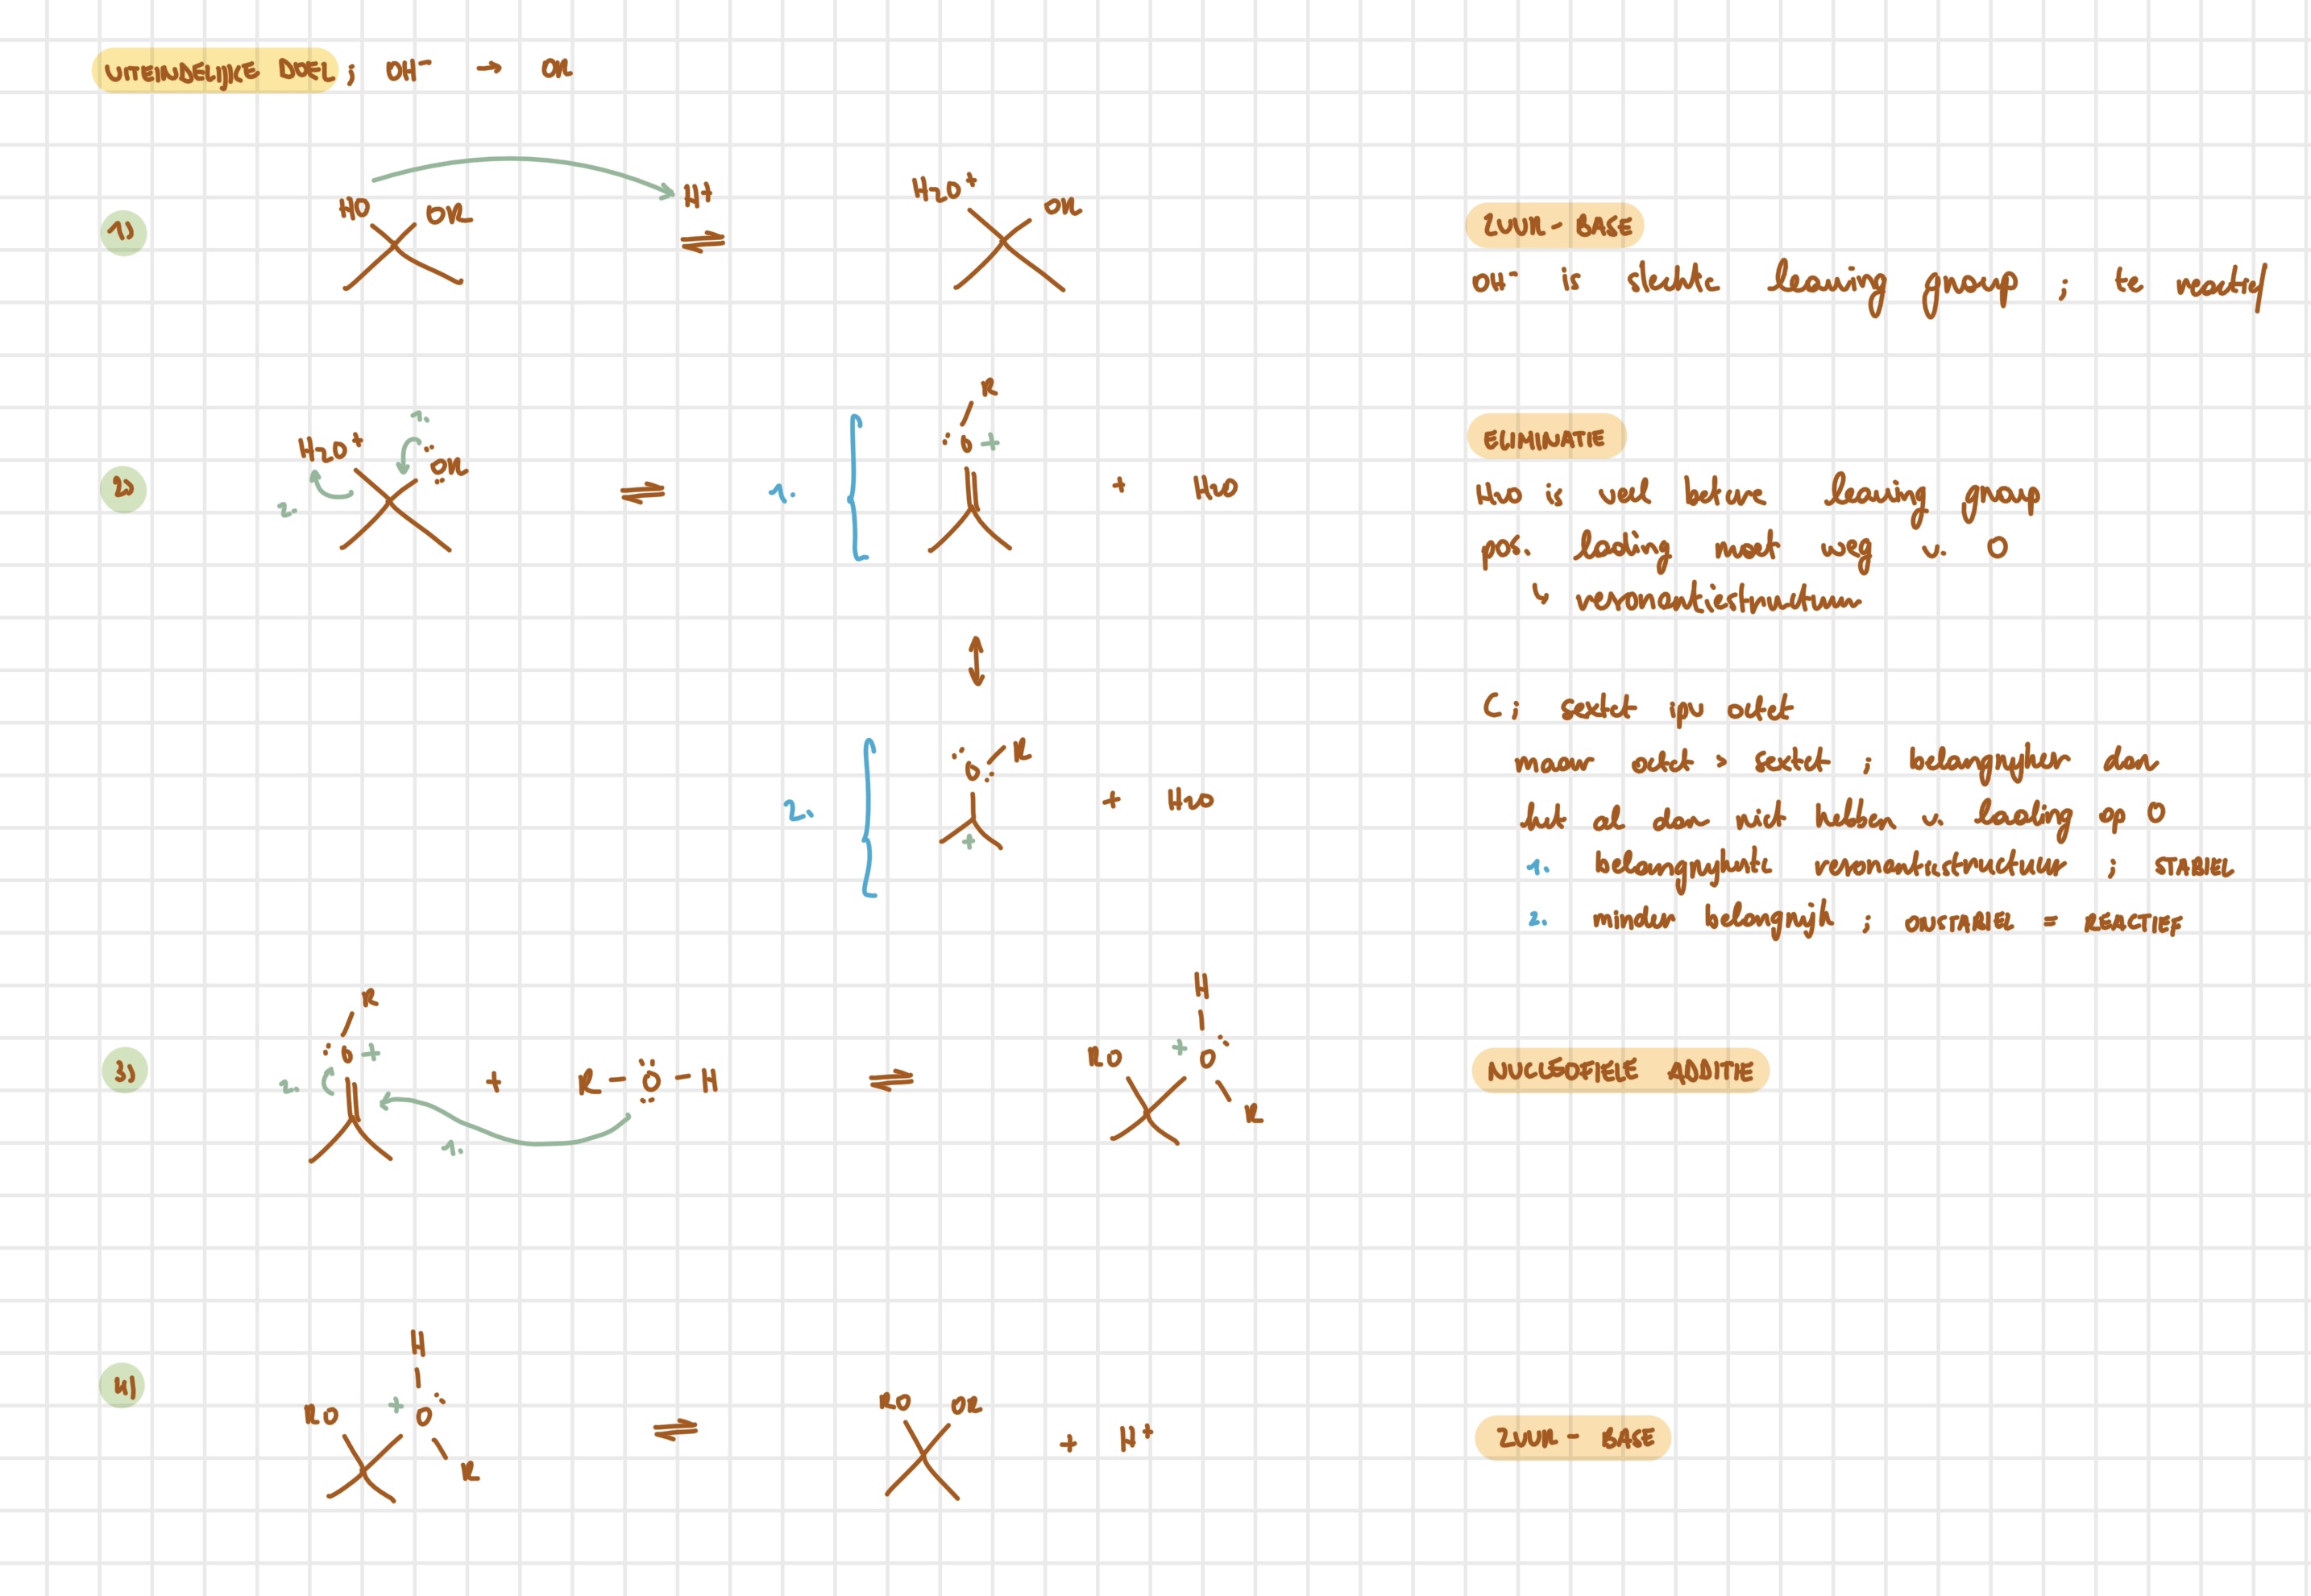 UITEINDELIJKE DOEL ; OH⁻ → OR
1)
HO OR H⁺ ⇌ H₂O⁺ OR
ZUUR - BASE
OH⁻ is slechte leaving group ; te reactief
2)
1.
2.
H₂O⁺ OR ⇌ 1. R O + + H₂O
ELIMINATIE
H₂O is veel betere leaving group
pos. lading moet weg v. O
↳ resonantiestructuur
↕
2. O R + + H₂O
C ; sextet ipv octet
maar octet > sextet ; belangrijker dan
het al dan niet hebben v. lading op O
1. belangrijkste resonantiestructuur ; STABIEL
2. minder belangrijk ; ONSTABIEL = REACTIEF
3)
R O + + R - O - H ⇌ RO + O H R
2.
1.
NUCLEOFIELE ADDITIE
4)
RO + O H R ⇌ RO OR + H⁺
ZUUR - BASE